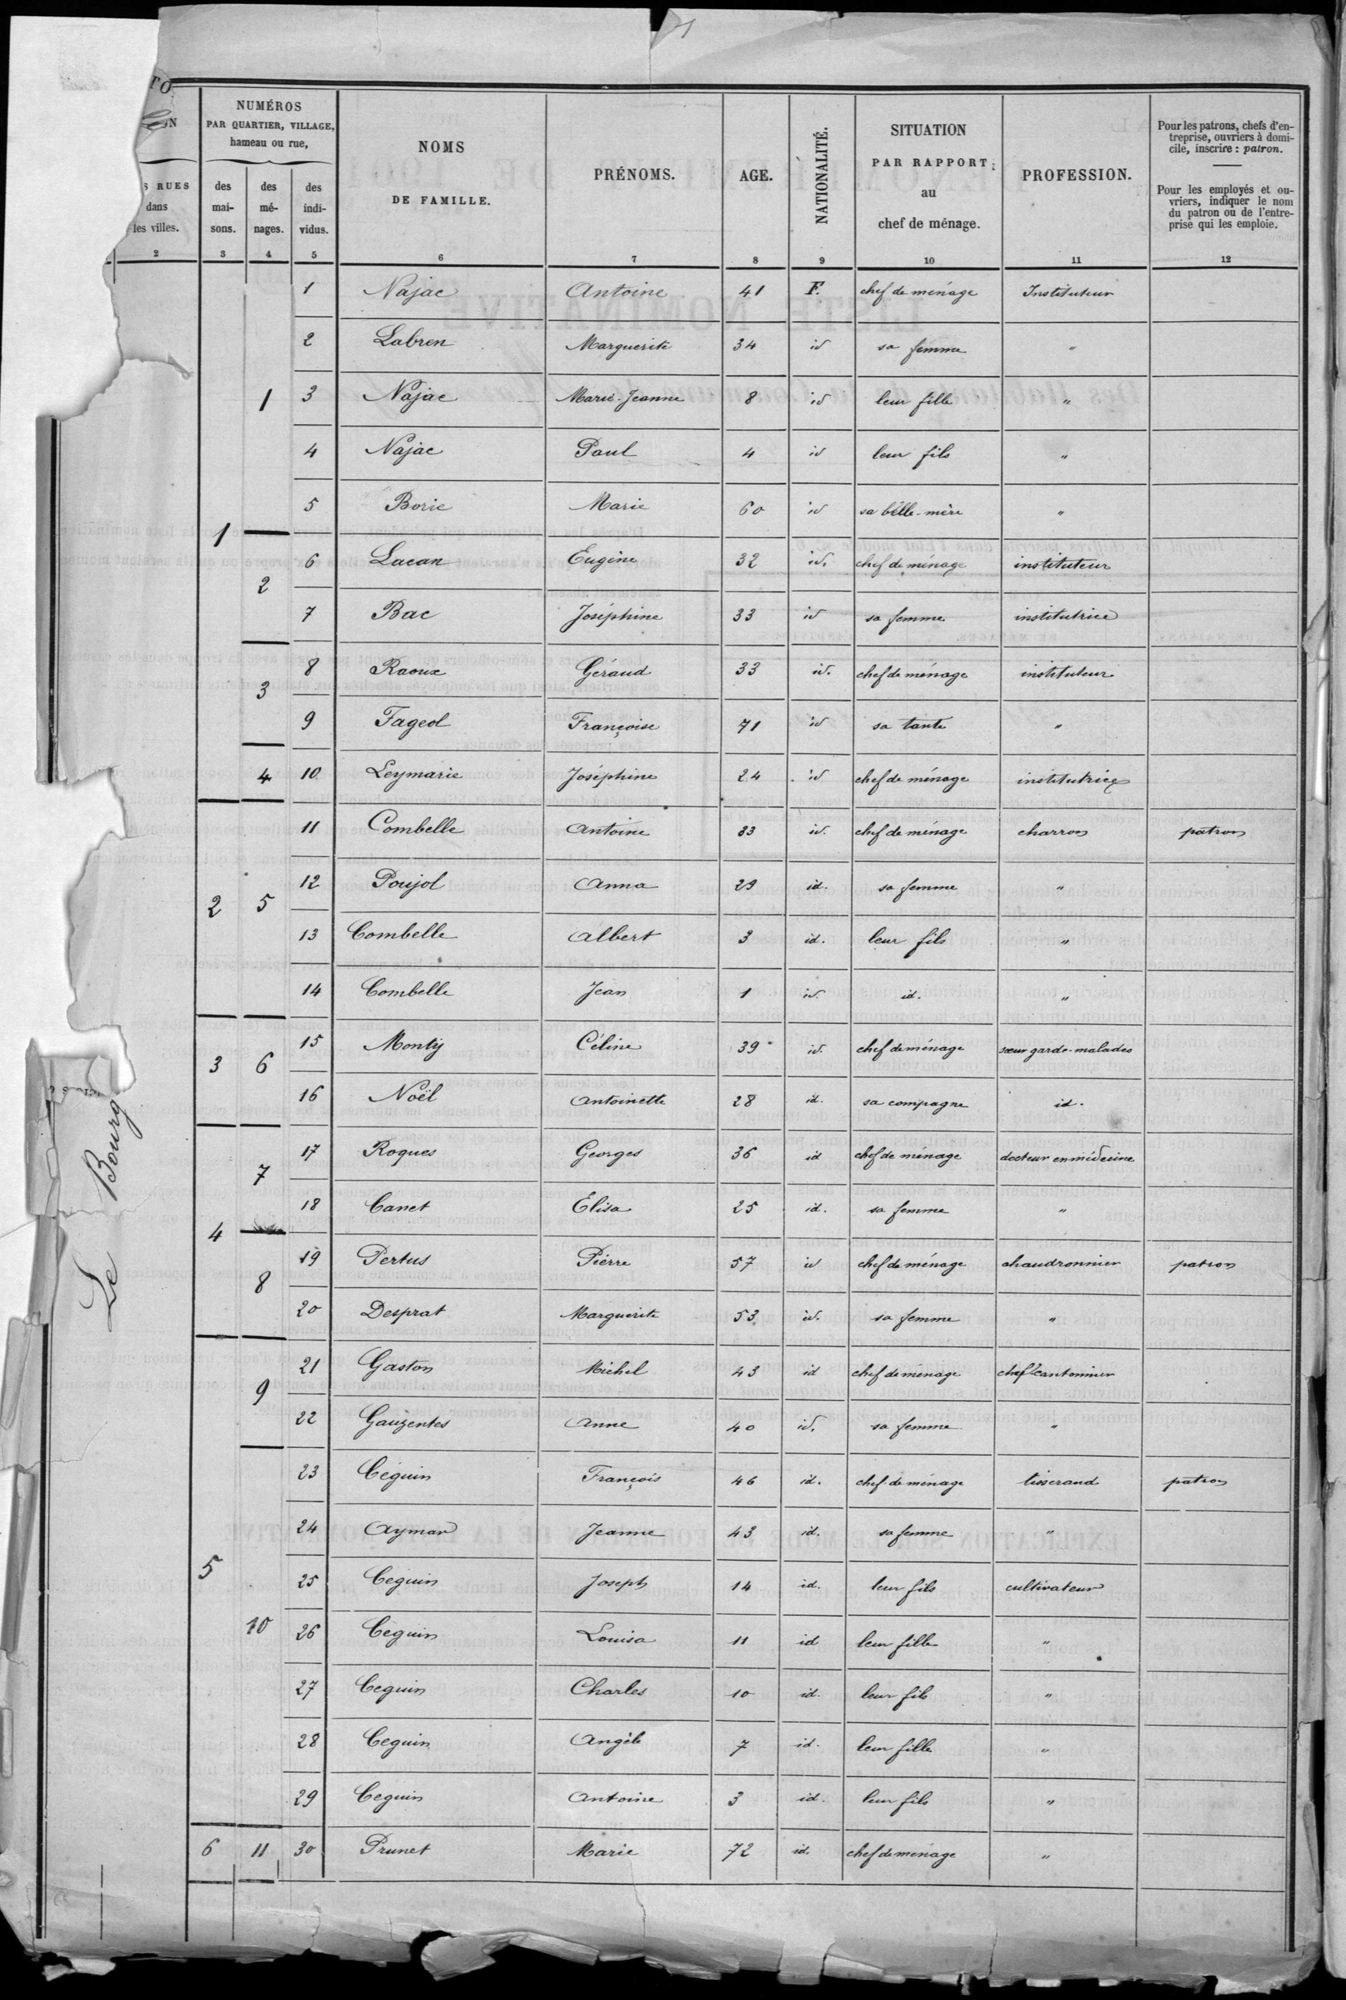 NUMÉROS
PAR QUARTIER, VILLAGE,
hameau ou rue,
NOMS
DE FAMILLE.
PRÉNOMS.
AGE.
NATIONALITÉ.
SITUATION
PAR RAPPORT
au
chef de ménage.
PROFESSION.
Pour les patrons, chefs d'en-
treprise, ouvriers à domi-
cile, inscrire : patron.
Pour les employés et ou-
vriers, indiquer le nom
du patron ou de l'entre-
prise qui les emploie.
RUES
dans
les villes.
des
mai-
sons.
des
mé-
nages.
des
indi-
vidus.
2 3 4 5 6 7 8 9 10 11 12
Le Bourg
1 1 1 Najac Antoine 41 F. chef de ménage Instituteur
2 Labren Marguerite 34 id sa femme "
3 Najac Marie-Jeanne 8 id leur fille "
4 Najac Paul 4 id leur fils "
5 Borie Marie 60 id sa belle-mère "
2 6 Lacan Eugène 32 id. chef de ménage instituteur
7 Bac Joséphine 33 id sa femme institutrice
3 8 Raoux Géraud 33 id. chef de ménage instituteur
9 Fageol Françoise 71 id sa tante "
4 10 Leymarie Joséphine 24 id chef de ménage institutrice
2 5 11 Combelle Antoine 33 id. chef de ménage charron patron
12 Poujol Anna 29 id. sa femme "
13 Combelle Albert 3 id. leur fils "
14 Combelle Jean 1 id. id. "
3 6 15 Monty Céline 39 id. chef de ménage sœur garde-malades
16 Noël Antoinette 28 id. sa compagne id.
4 7 17 Roques Georges 36 id chef de ménage docteur en médecine
18 Canet Elisa 25 id. sa femme "
8 19 Pertus Pierre 57 id chef de ménage chaudronnier patron
20 Desprat Marguerite 53 id. sa femme "
5 9 21 Gaston Michel 43 id chef de ménage chef cantonnier
22 Gauzentes Anne 40 id. sa femme "
10 23 Céguin François 46 id. chef de ménage tisserand patron
24 Aymar Jeanne 43 id. sa femme "
25 Céguin Joseph 14 id. leur fils cultivateur
26 Céguin Louisa 11 id leur fille "
27 Ceguin Charles 10 id. leur fils "
28 Ceguin Angèle 7 id. leur fille "
29 Ceguin Antoine 3 id. leur fils "
6 11 30 Prunet Marie 72 id. chef de ménage "